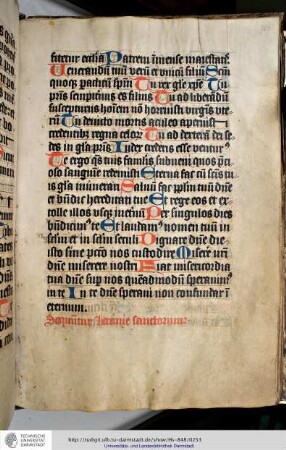 fitetur ecclia Patrem īmense maiestatis
Venerandū tuū verū et vnicū filiū Scm̄
quoqȝ paclitū spm̄ Tu rex gl'e xp̄e Tu
pris sempitnus es filius Tu ad liberādū
suscepturus hoīem nō horruisti virgīs vterū
Tu deuicto mortis aculeo apruisti
credentibȝ regna celoȝ Tu ad dexterā dei sedes
in gl'a pris Iudex crederis esse venturus
Te ergo qs tuis famulis subueni quos p̄cioso
sanguine redemisti Eterna fac cū scīs tuis
gl'a munerari Saluū fac pplm tuū dn̄e
et bn̄dic hereditati tue Et rege eos et extolle
illos vsqȝ ineternū Per singulos dies
bn̄dicimus te Et laudamus nomen tuū in
sclm et in sclm seculi Dignare dn̄e die
isto sine pcc̄o nos custodire Miserere nri
dn̄e miserere nostri Fiat misericordia
tua dn̄e sup nos quēadmodū sperauimus
in te In te dn̄e speraui non confundar ī
eternum
Sequntur letanie sanctorum
TECHNISCHE
UNIVERSITÄT
DARMSTADT
http://tudigit.ulb.tu-darmstadt.de/show/Hs-848/0253
Universitäts- und Landesbibliothek Darmstadt